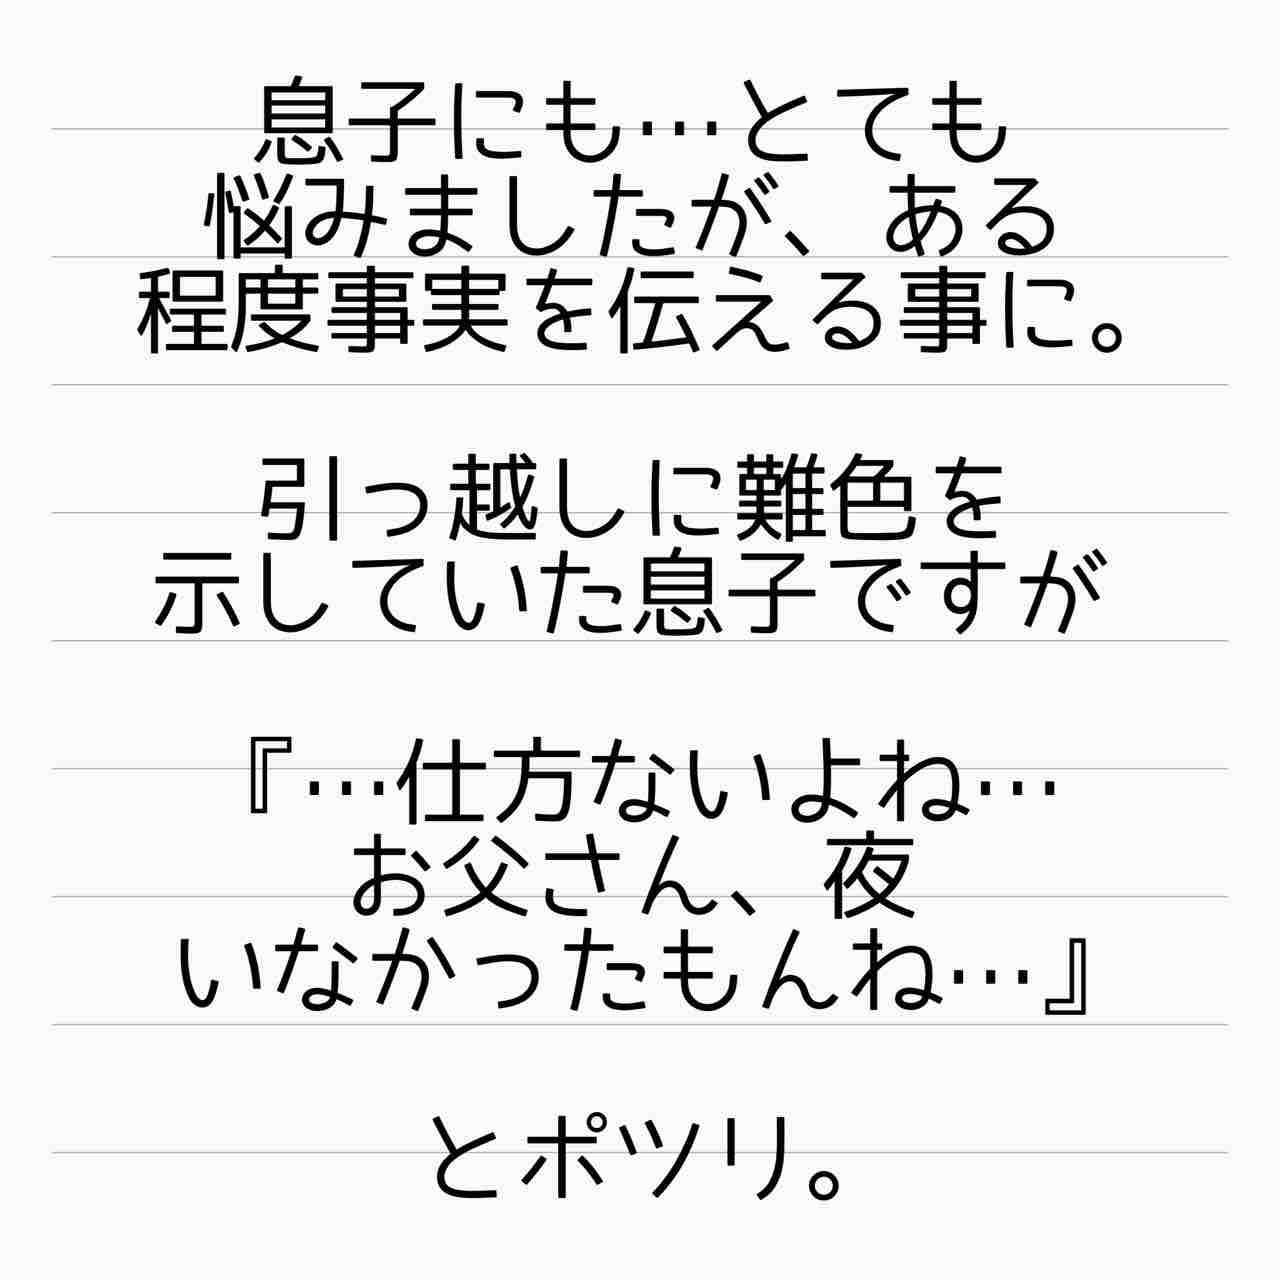 息子にも…とても
悩みましたが、ある
程度事実を伝える事に。
引っ越しに難色を
示していた息子ですが
『…仕方ないよね…
お父さん、夜
いなかったもんね…』
とポツリ。